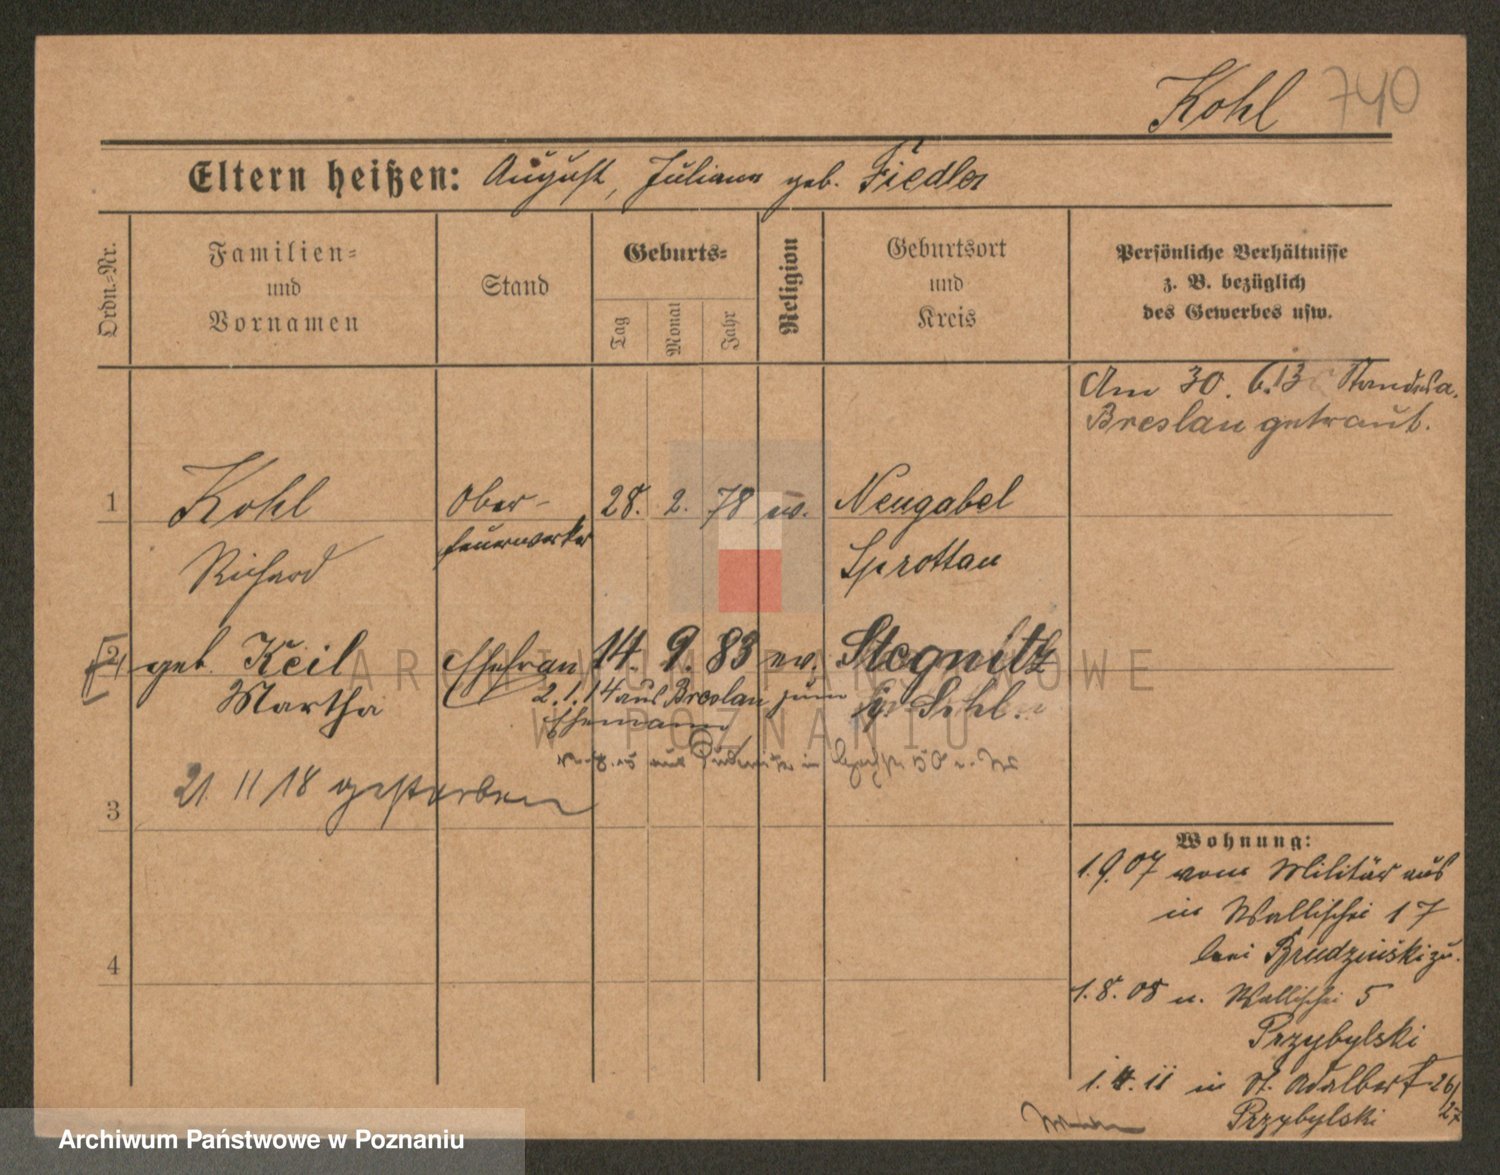 Kohl 740
Eltern heißen: August, Juliane geb. Fiedler
Ordn.-Nr.
Familien-
und
Vornamen
Stand
Geburts-
Tag
Monat
Jahr
Religion
Geburtsort
und
Kreis
Persönliche Verhältnisse
z. B. bezüglich
des Gewerbes usw.
Am 30. 6. 13 Standesa.
Breslau getraut.
1 Kohl Ober- 28. 2. 78 ev. Neugabel
Richard feuerwerker Sprottau
2 geb. Keil Ehefrau 14. 9. 83 ev.
Martha 2.1.14 aus Breslau zum
Ehemann
21. 11 18 gestorben
3
Wohnung:
1.9.07 vom Militär aus
in Wallischei 17
bei Brudzinski zu.
4
1.8.08 n. Wallischei 5
Przybylski
1.4.11 in St. Adalbert 26/27
Przybylski
ARCHIWUM PAŃSTWOWE
W POZNANIU
Archiwum Państwowe w Poznaniu